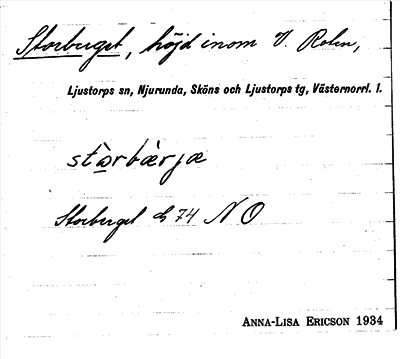 Storberget, höjd inom V. Roten,
Ljustorps sn, Njurunda, Sköns och Ljustorps tg, Västernorrl. l.
stòrbàrjæ
Storberget G 74 NO
ANNA-LISA ERICSON 1934